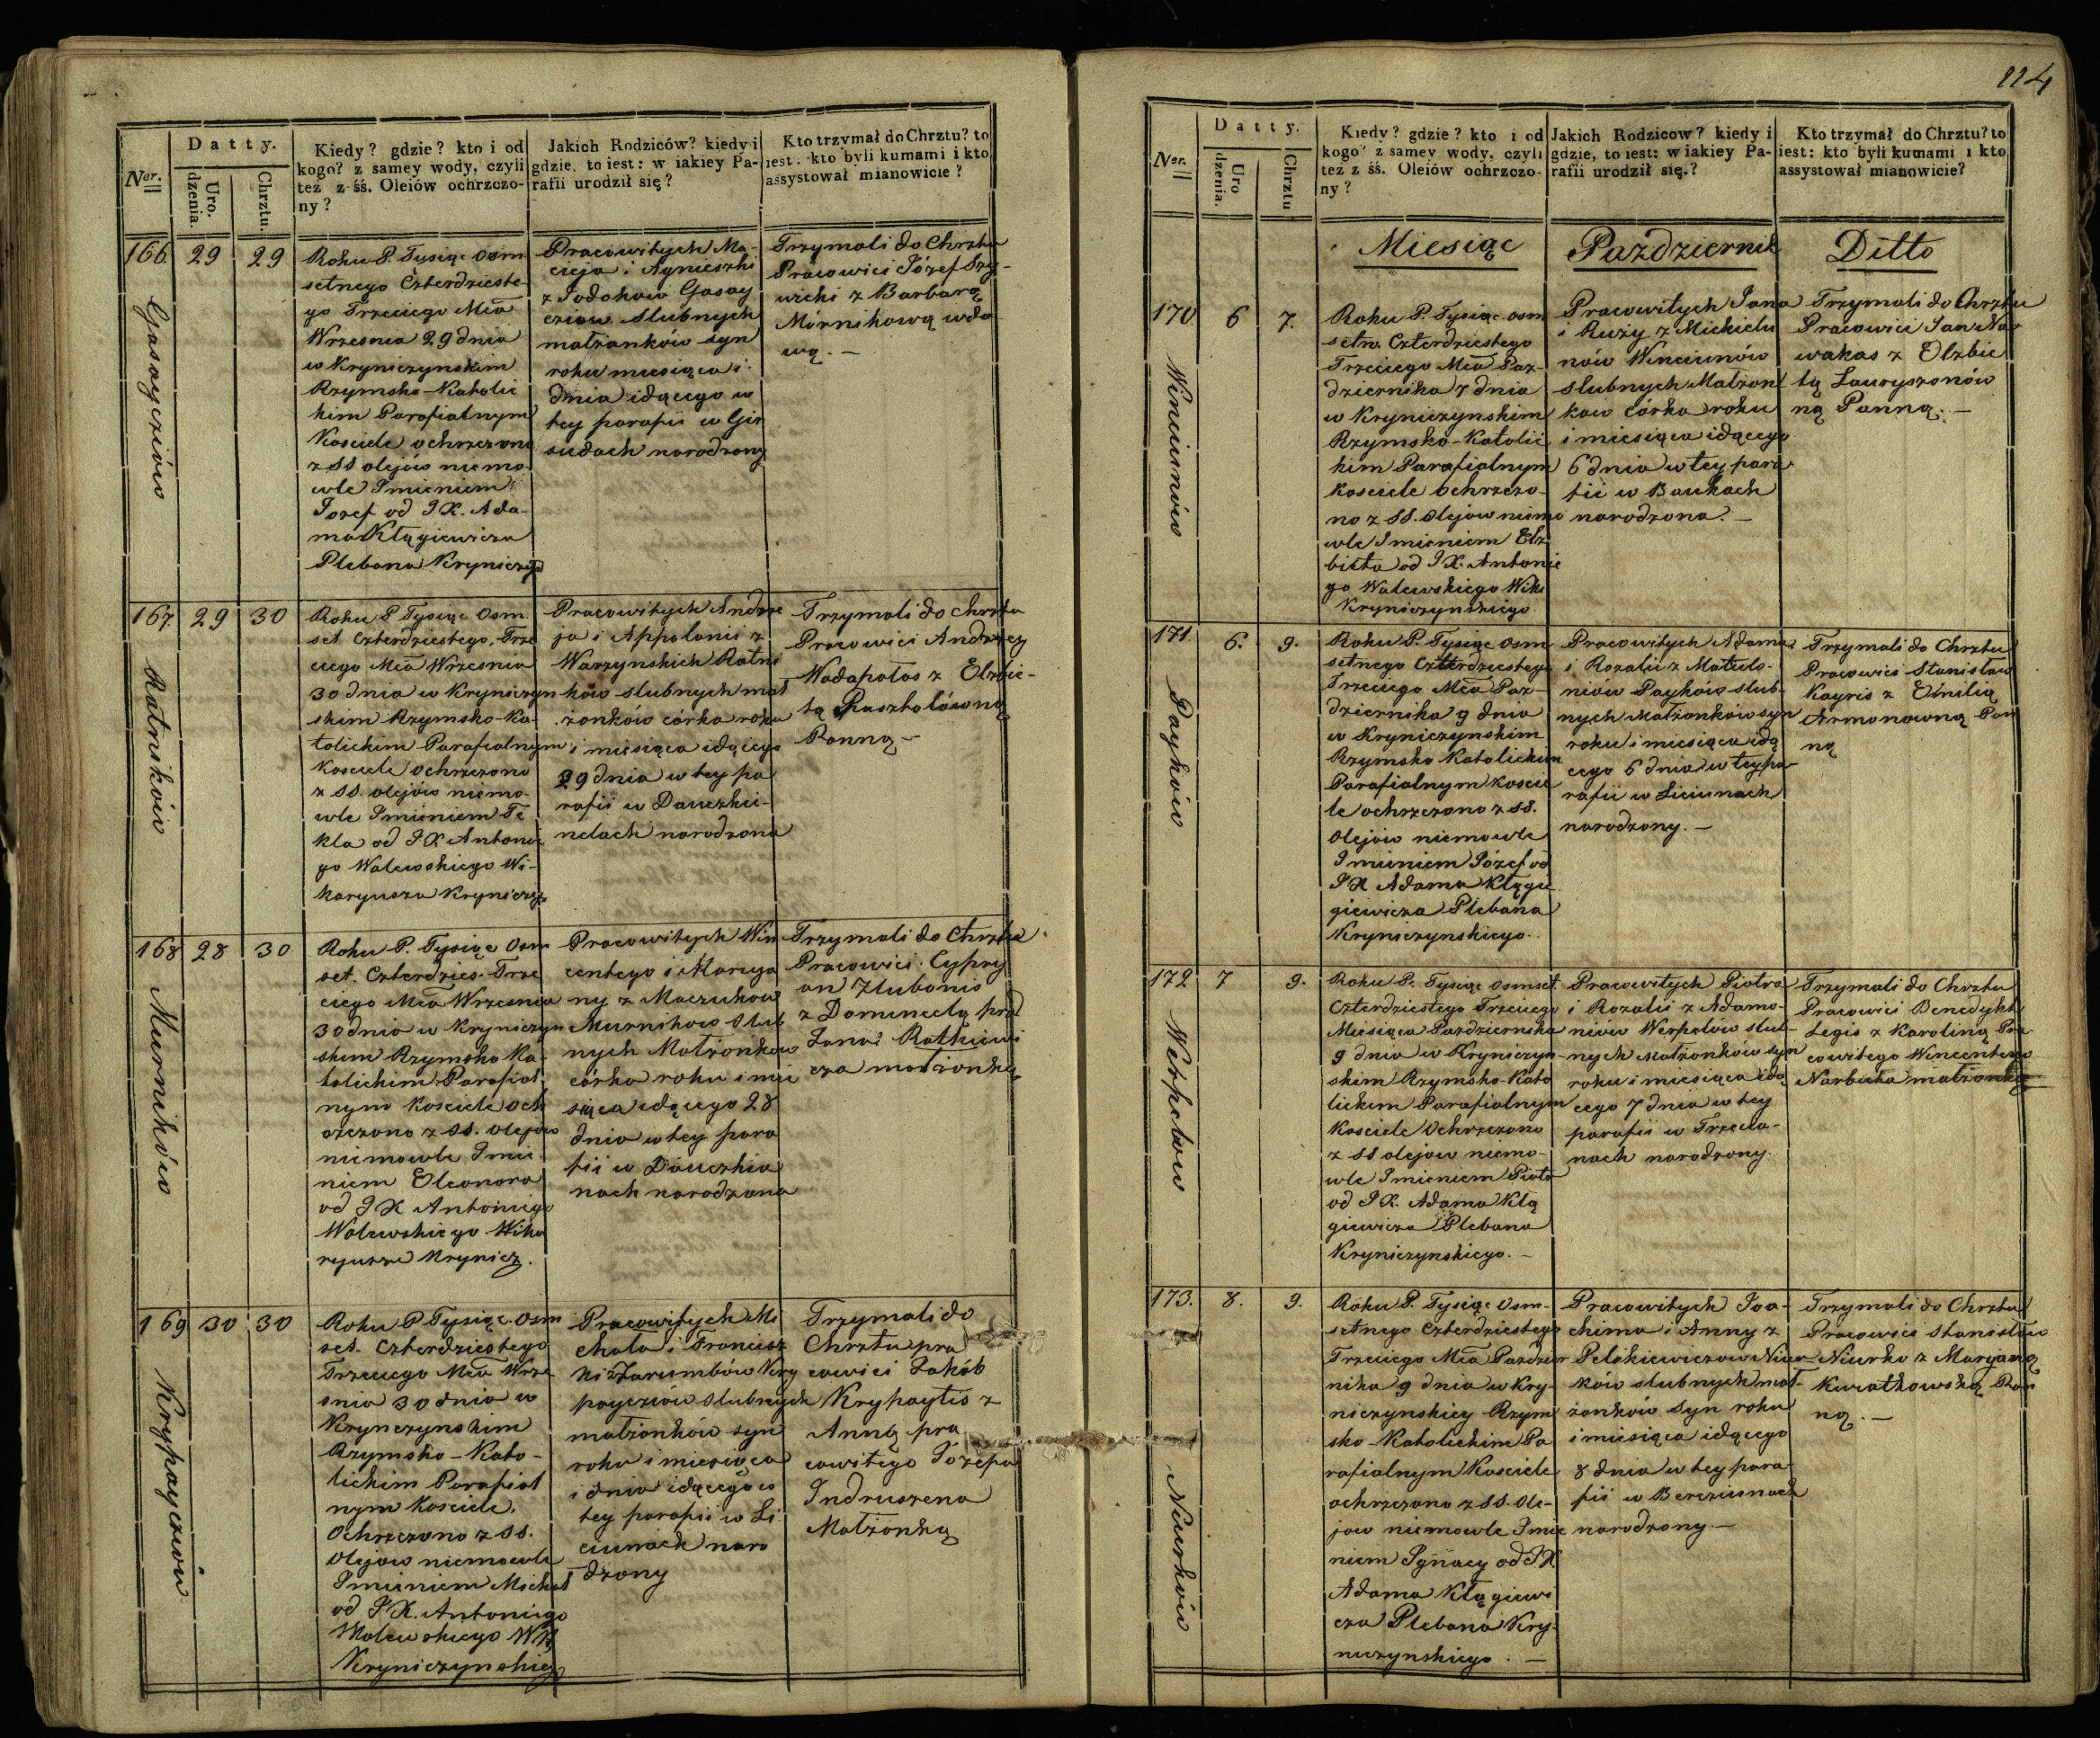 Ner.
Datty.
Uro.
dzenia.
Chrztu.
Kiedy? gdzie? kto i od
kogo? z samey wody, czyli
też z śś. Oleiów ochrzczo-
ny?
Jakich Rodziców? kiedy i
gdzie, to iest: w iakiey Pa-
rafii urodził się?
Kto trzymał do Chrztu? to
iest: kto byli kumami i kto
assystował mianowicie?
166. 29 29
Gasayciów
Roku P. Tysiąc osm
setnego Czterdzieste-
go Trzeciego Mca
Wrzesnia 29 dnia
w Kryniczynskim
Rzymsko-Katolic
kim Parafialnym
Kosciele ochrzczono
z SS olejów niemo-
wle Imieniem
Jozef od JX. Ada-
ma Kłągiewicza
Plebana Kryniczyn
Pracowitych Ma-
cieja i Agnieszki
z Jodokow Gasay
cziow slubnych
małżonków syn
roku miesiąca i
dnia idącego w
tey parafii w Gir
sudach narodzony
Trzymali do Chrztu
Pracowici Józef Szy-
wicki z Barbarą
Mórnikową wdo
wą. —
167 29 30
Ratnikow
Roku P Tysiąc Osm.
set Czterdziestego. Trze
ciego Mca Wrzesnia
30 dnia w Kryniczyn
skim Rzymsko-Ka-
tolickim Parafialnym
Kosciele ochrzczono
z SS. olejów niemo-
wle Imieniem Te
kla od JX Antonie
go Walewskiego Wi-
karyusza Kryniczy.
Pracowitych Andrze
ja i Appolonii z
Warzynskich Ratni
ków slubnych mał
żonków córka roku
i miesiąca idącego
29 dnia w tey pa
rafii w Dauczkie-
nelach narodzona
Trzymali do chrztu
Pracowici Andrzey
Wadapałas z Elżbie-
tą Rusztolówną
Panną —
168 28 30
Murników
Roku P. Tysiąc Osm
set. Czterdzies. Trze
ciego Mca Wrzesnia
30 dnia w Kryniczyn
skim Rzymsko Ka-
tolickim Parafial
nym Kosciele och
rzczono z SS. olejow
niemowle Imie
niem Eleonora
od JX Antoniego
Walewskiego Wika
ryusza Krynicz.
Pracowitych Win
centego i Maryja
ny z Maczukow
Murnikow slub
nych Małżonkow
córka roku i mie
siąca idącego 28
dnia w tey para
fii w Dauczkia
nach narodzona
Trzymali do Chrztu
Pracowici. Cypry
an Żlubonis
z Dominelą prac
Jana Ratkiewi
cza małżonką
169 30 30
Krypayciów
Roku P Tysiąc Osm
set. Czterdziestego
Trzeciego Mca Wrze
snia 30 dnia w
Krynczynskim
Rzymsko-Kato-
lickim Parafial
nym Kosciele,
Ochrzczono z SS.
Olejow niemowle
Imieniem Michał
od JX. Antoniego
Walewskiego Wik
Kryniczynskieg
Pracowitych Mi
chała i Francisz
ki z Jarumbów Kry
payciów slubnych
małżonków syn
roku i miesiąca
i dnia idącego w
tey parafii w Li
ciunach naro
dzony
Trzymali do
Chrztu pra
cowici Jakób
Krypaytis z
Anną pra
cowitego Józefa
Indruszena
Małżonką
114
Ner.
Datty.
Uro
dzenia.
Chrztu
Kiedy? gdzie? kto i od
kogo? z samey wody, czyli
też z śś. Oleiów ochrzczo-
ny?
Jakich Rodzicow? kiedy i
gdzie, to iest: w iakiey Pa-
rafii urodził się.?
Kto trzymał do Chrztu? to
iest: kto byli kumami i kto
assystował mianowicie?
Miesiąc Pazdziernik Ditto
170 6 7.
Winciunów
Roku P. Tysiąc osm
setn. Czterdziestego
Trzeciego Mca Paz-
dziernika 7 dnia
w Kryniczynskim
Rzymsko-Katolic
kim Parafialnym
kosciele ochrzczo-
no z SS. olejow niemo
wle Imieniem Elz
bieta od JX. Antonie
go Walewskiego Wik
Kryniczynskiego
Pracowitych Jana
i Ruży z Mickielu
nów Winciunów
slubnych Małżon
kow córka roku
i miesiąca idącego
6 dnia w tey para-
fii w Baukach
narodzona. —
Trzymali do Chrztu
Pracowici Jan Na-
wakas z Elżbie
tą Lauryszonów
ną Panną. —
171. 6. 9.
Payków
Roku P. Tysiąc Osm
setnego Czterdziestego
Trzeciego Mca Paz-
dziernika 9 dnia
w Kryniczynskim
Rzymsko Katolickim
Parafialnym koscie
le ochrzczono z SS.
Olejów niemowle
Imieniem Józef od
JX Adama Kłągie
giewicza Plebana
Kryniczynskiego.
Pracowitych Adama
i Rozalii z Matulo-
niów Payków slub-
nych Małżonków syn
roku i miesiąca idą
cego 6 dnia w tey pa-
rafii w Liciunach
narodzony. —
Trzymali do Chrztu
Pracowici Stanisław
Kayris z Emilią
Armonowną Pan
ną
172 7 9.
Werpelow
Roku P. Tysiąc osmset
Czterdziestego Trzeciego
Miesiąca Pazdziernika
9 dnia w Kryniczyn-
skim Rzymsko-Kato
lickim Parafialnym
Kosciele Ochrzczono
z SS olejow niemo-
wle Imieniem Piotr
od JX. Adama Kłą
giewicza Plebana
Kryniczynskiego. —
Pracowitych Piotra
i Rozalii z Adamo-
niów Werpelow slub-
nych Małżonków syn
roku i miesiąca idą
cego 7 dnia w tey
parafii w Trzecia-
nach narodzony.
Trzymali do Chrztu
Pracowici Benedykt
Legis z Karoliną Pra
cowitego Wincentego
Narbuta małżonką
173. 8. 9.
Niurków
Roku P. Tysiąc Osm-
setnego Czterdziestego
Trzeciego Mca Pazdzier
nika 9 dnia w Kry-
niczynskiey Rzym
sko-Katolickim Pa
rafialnym Kosciele
ochrzczono z SS. Ole-
jow niemowle Imie
niem Ignacy od JX
Adama Kłągiewi
cza Plebana Kry-
niczynskiego. —
Pracowitych Joa-
chima i Anny z
Pelskiewiczow Niur
ków slubnych mał-
żonków syn roku
i miesiąca idącego
8 dnia w tey para-
fii w Berziunach
narodzony. —
Trzymali do Chrztu
Pracowici Stanisław
Niurko z Maryanną
Kwiatkowską Pan
ną. —